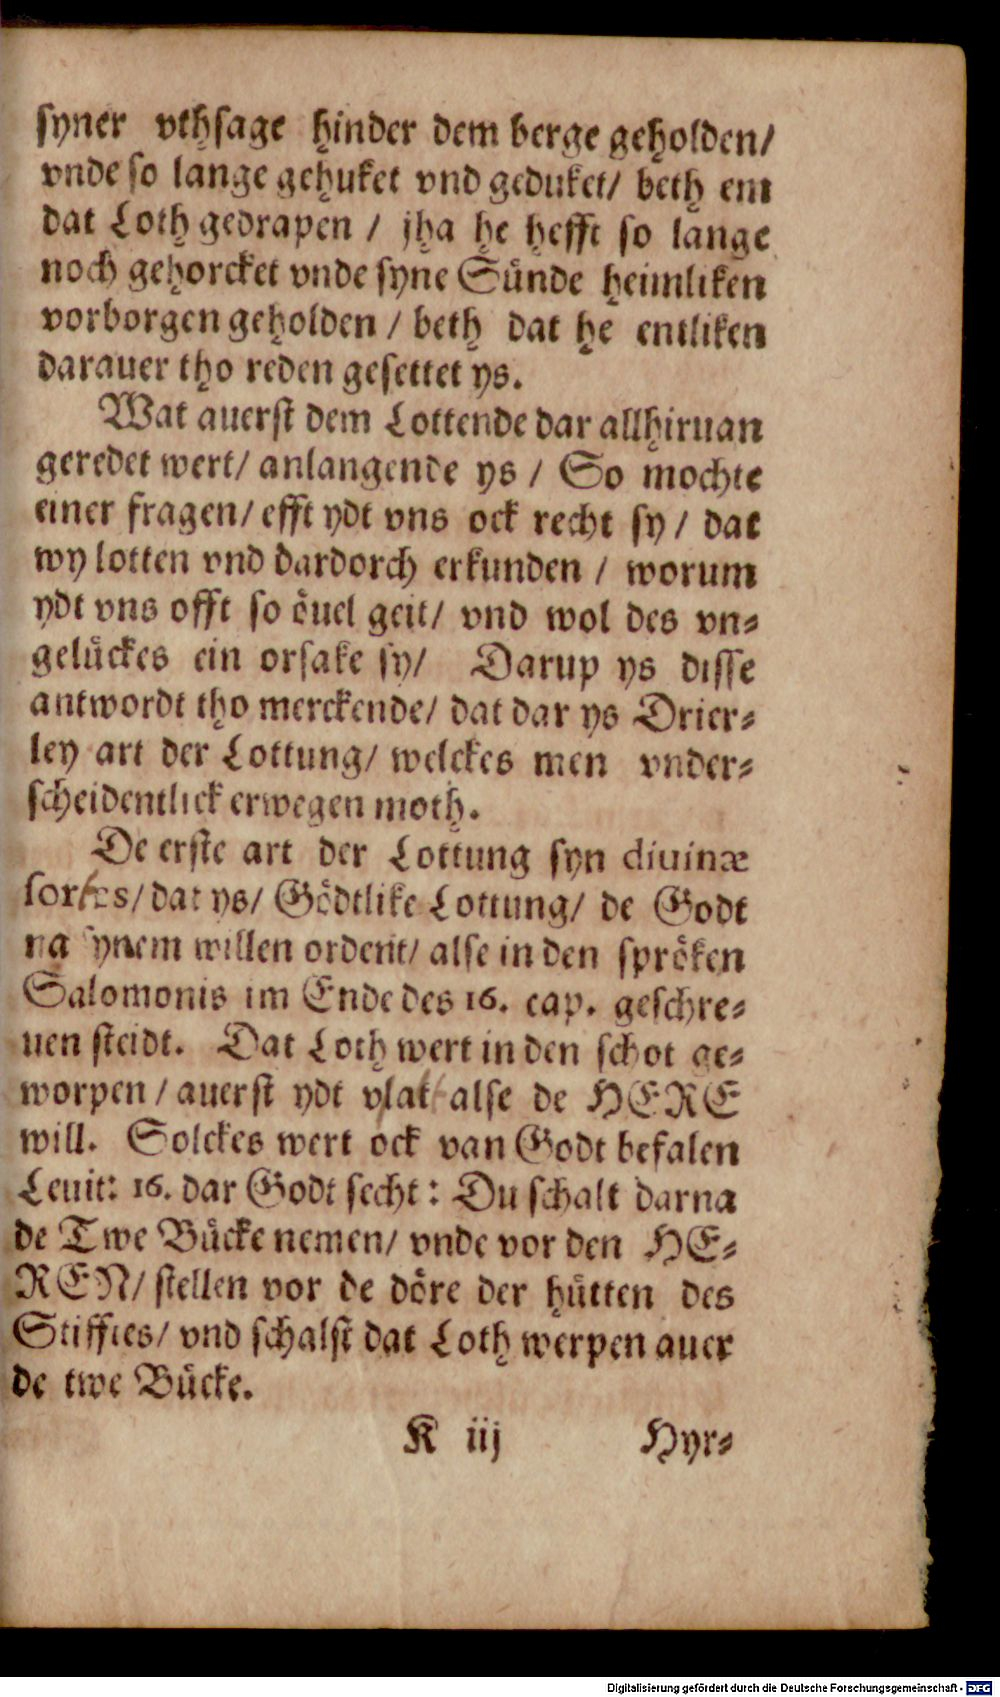 syner vthsage hinder dem berge geholden/
vnde so lange gehuket vnd geduket/ beth em
dat Loth gedrapen / jha he hefft so lange
noch gehorcket vnde syne Sünde heimliken
vorborgen geholden / beth dat he entliken
darauer tho reden gesettet ys.
Wat auerst dem Lottende dar allhiruan
geredet wert/ anlangende ys / So mochte
einer fragen/ efft ydt vns ock recht sy / dat
wy lotten vnd dardorch erkunden / worum
ydt vns offt so öuel geit/ vnd wol des vn⸗
gelückes ein orsake sy/ Darup ys disse
antwordt tho merckende/ dat dar ys Drier⸗
ley art der Lottung/ welckes men vnder⸗
scheidentlick erwegen moth.
De erste art der Lottung syn diuinæ
sortes/ dat ys/ Gödtlike Lottung/ de Godt
na synem willen ordent/ alse in den spröken
Salomonis im Ende des 16. cap. geschre⸗
uen steidt. Dat Loth wert in den schot ge⸗
worpen / auerst ydt alse de HERE
will. Solckes wert ock van Godt befalen
Leuit: 16. dar Godt secht: Du schalt darna
de Twe Bücke nemen/ vnde vor den HE⸗
REN/ stellen vor de döre der hütten des
Stifftes/ vnd schalst dat Loth werpen auer
de twe Bücke.
K iij Hyr⸗
Digitalisierung gefördert durch die Deutsche Forschungsgemeinschaft - DFG